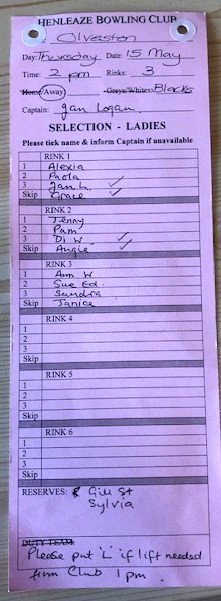 HENLEAZE BOWLING CLUB
Olveston
Day: Thursday Date: 15 May
Time: 2 pm Rinks: 3
Home/Away Greys/Whites Blacks
Captain: Jan Logan
SELECTION - LADIES
Please tick name & inform Captain if unavailable
RINK 1
1 Alexia
2 Paola
3 Jan L. ✓
Skip Grace ✓
RINK 2
1 Jenny
2 Pam
3 Di W ✓
Skip Angie ✓
RINK 3
1 Ann W
2 Sue Ed.
3 Sandra
Skip Janice
RINK 4
1
2
3
Skip
RINK 5
1
2
3
Skip
RINK 6
1
2
3
Skip
RESERVES: Gill St
Sylvia
DUTY TEAM:
Please put 'L' if lift needed
from Club 1 pm.